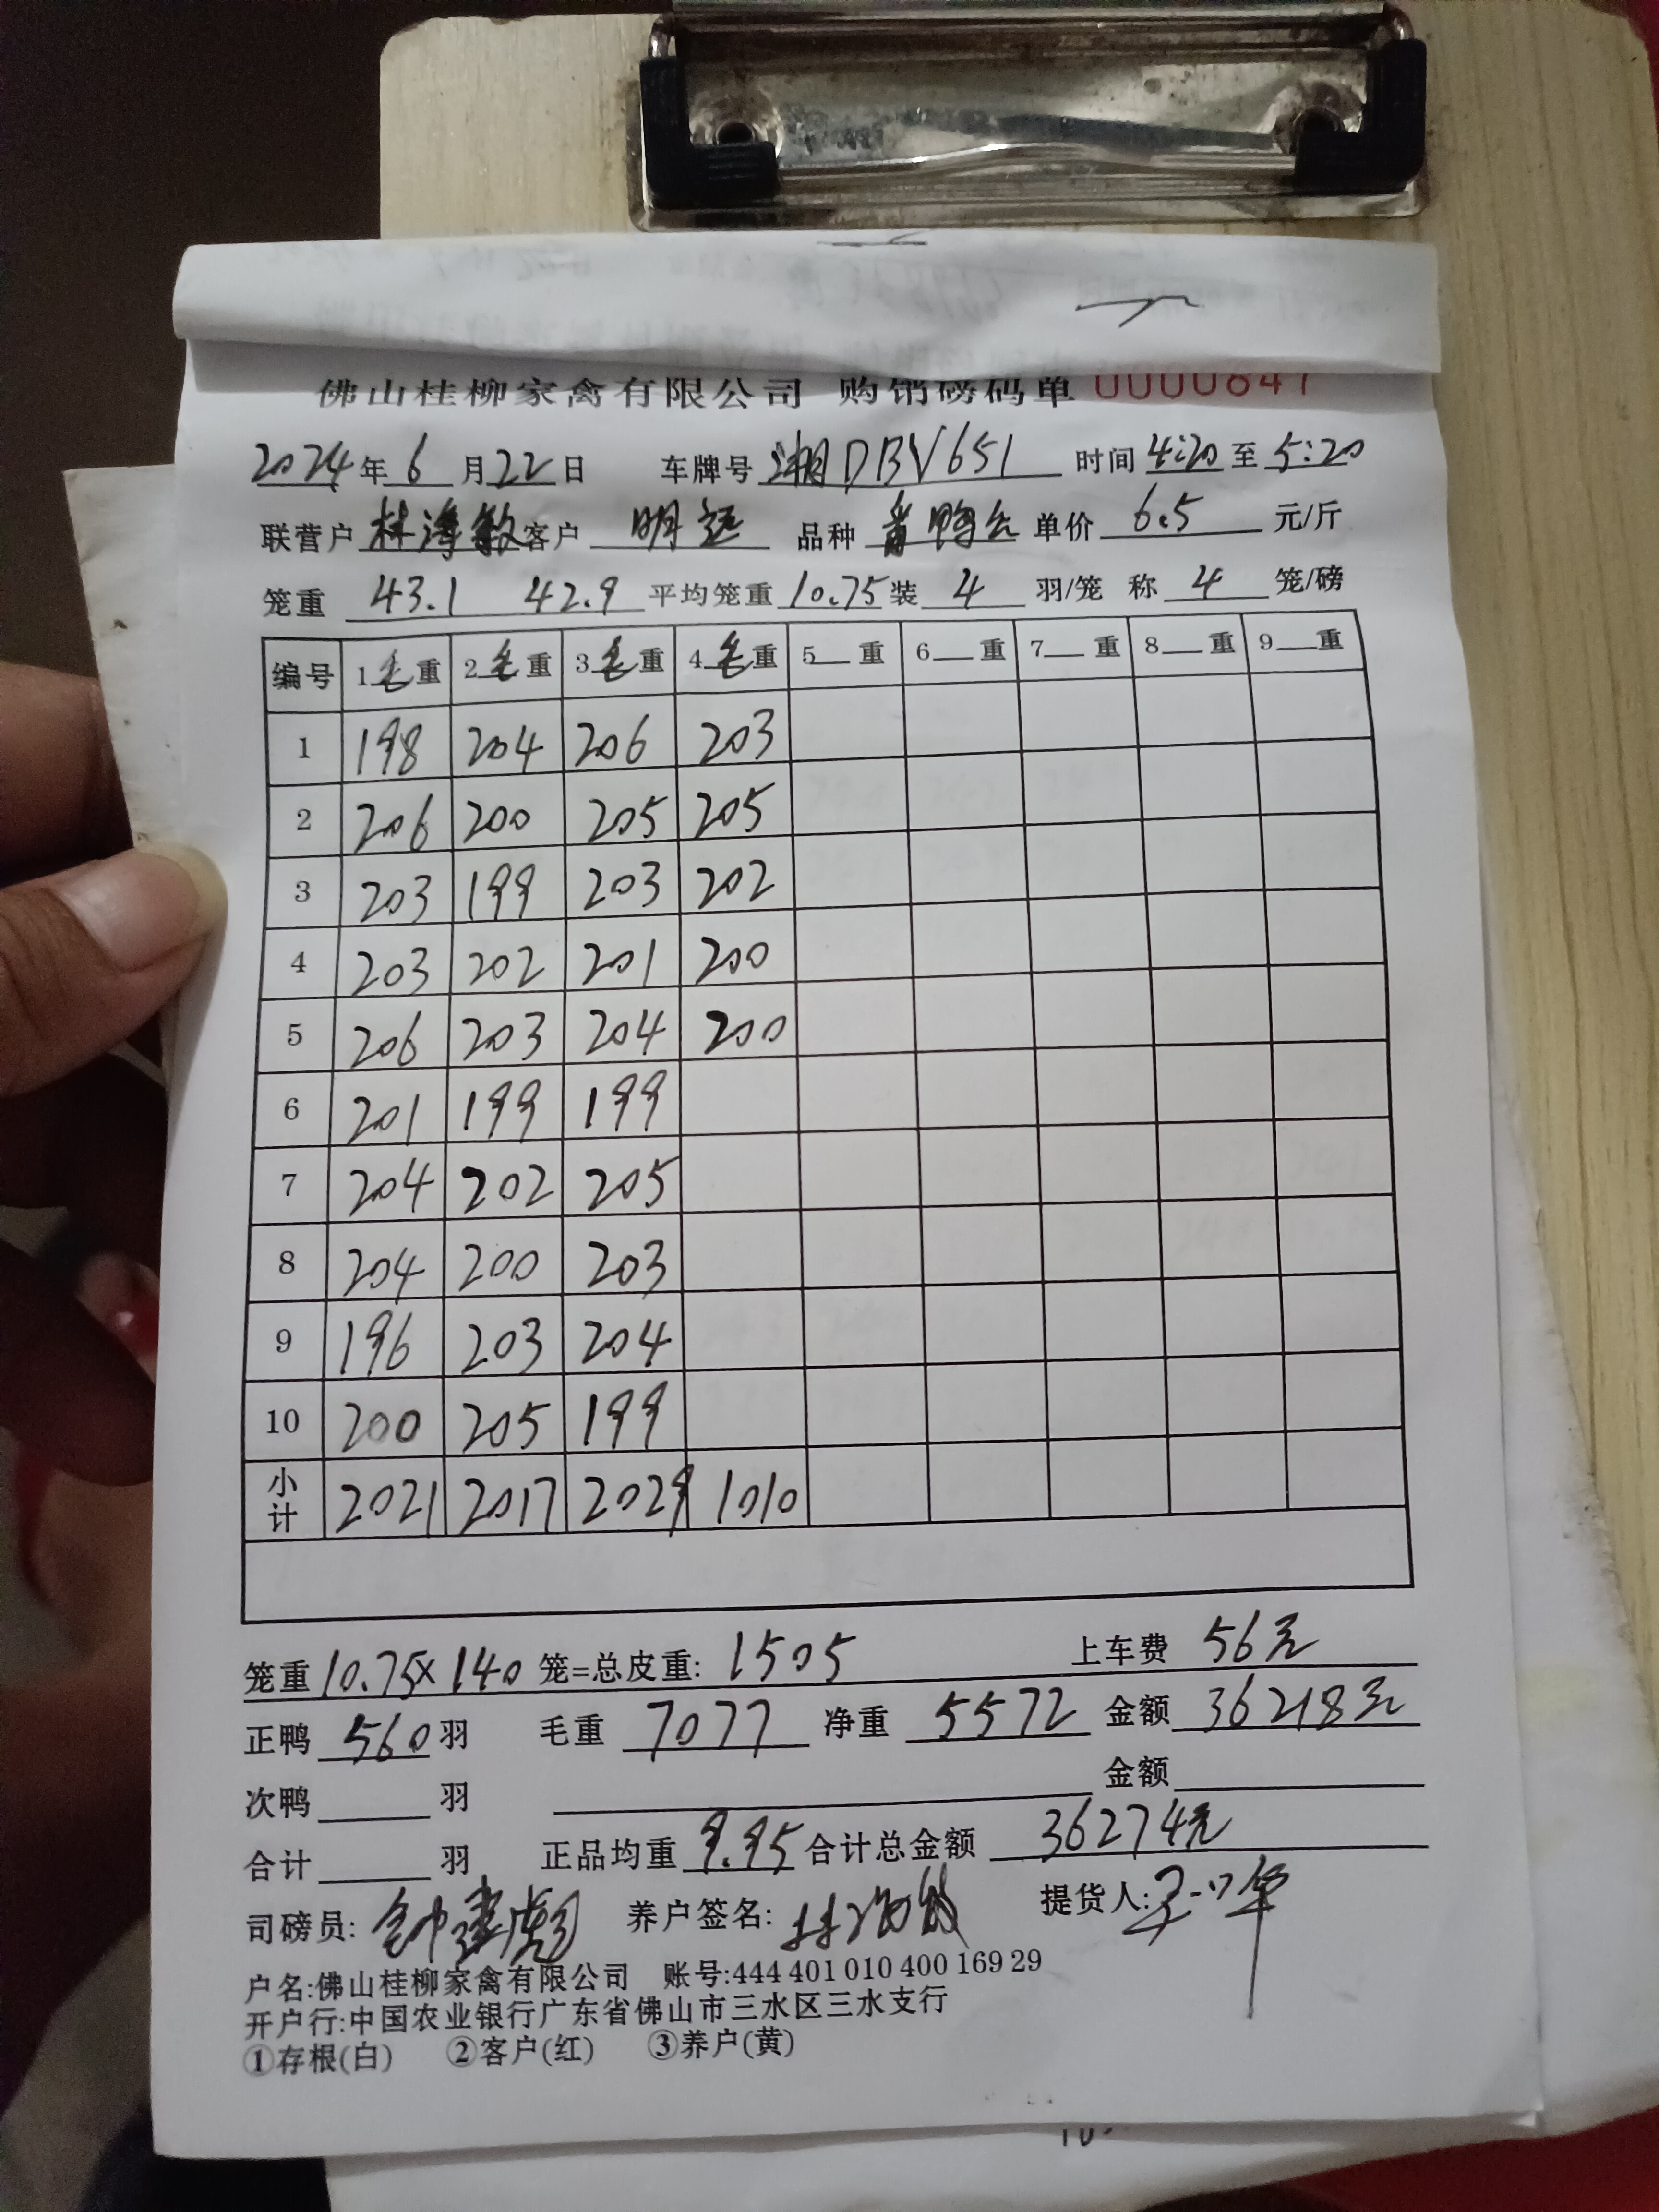 佛山桂柳家禽有限公司 购销磅码单 0000847
2024年6月22日 车牌号 湘DBV651 时间 4:20 至 5:20
联营户 林海敏 客户 明远 品种 单价 6.5 元/斤
笼重 43.1 42.9 平均笼重 10.75 装 4 羽/笼 称 4 笼/磅
编号 1毛重 2毛重 3毛重 4毛重 5__重 6__重 7__重 8__重 9__重
1 198 204 206 203
2 206 200 205 205
3 203 199 203 202
4 203 202 201 200
5 206 203 204 200
6 201 199 199
7 204 202 205
8 204 200 203
9 196 203 204
10 200 205 199
小计 2021 2017 2029 1010
笼重 10.75×140 笼=总皮重: 1505 上车费 56元
正鸭 560 羽 毛重 7077 净重 5572 金额 36218元
次鸭 羽 金额
合计 羽 正品均重 9.95 合计总金额 36274元
司磅员: 养户签名: 提货人:
户名:佛山桂柳家禽有限公司 账号:444 401 010 400 169 29
开户行:中国农业银行广东省佛山市三水区三水支行
①存根(白) ②客户(红) ③养户(黄)